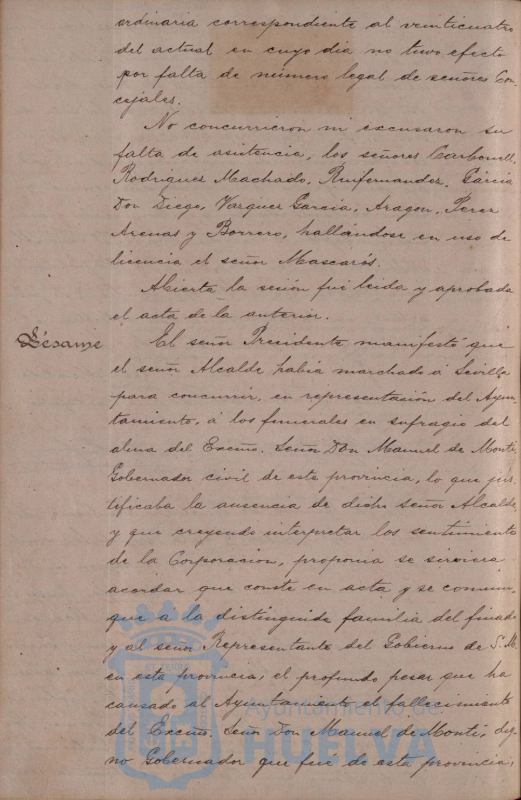 ordinaria correspondiente al veinticuatro
del actual en cuyo dia no tuvo efecto
por falta de número legal de señores Con-
cejales.
No concurrieron ni excusaron su
falta de asistencia, los señores Carbonell,
Rodriguez Machado, Ruifernandez, Garcia
Don Diego, Vazquez Garcia, Aragon, Perez
Arenas y Borrero, hallándose en uso de
licencia el señor Mascarós.
Abierta la sesión fué leida y aprobada
el acta de la anterior.
Pésame
El señor Presidente manifestó que
el señor Alcalde habia marchado á Sevilla
para concurrir, en representación del Ayun-
tamiento, á los funerales en sufragio del
alma del Excmo. Señor Don Manuel de Monti,
Gobernador civil de esta provincia, lo que jus-
tificaba la ausencia de dicho señor Alcalde,
y que creyendo interpretar los sentimiento
de la Corporacion, proponia se sirviera
acordar que conste en acta y se comuni-
que á la distinguida familia del finado
y al señor Representante del Gobierno de S. M.
en esta provincia, el profundo pesar que ha
causado al Ayuntamiento el fallecimiento
del Excmo. Señor Don Manuel de Monti, dig-
no Gobernador que fué de esta provincia;
Ayuntamiento de
HUELVA